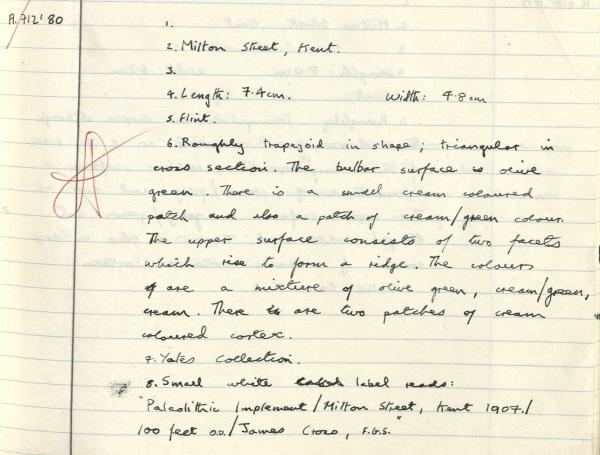 A.912'80
1.
2. Milton Street, Kent.
3.
4. Length: 7.4cm. Width: 4.8cm
5. Flint.
6. Roughly trapezoid in shape; triangular in
cross section. The bulbar surface is olive
green. There is a small cream coloured
patch and also a patch of cream/green colour.
The upper surface consists of two facets
which rise to form a ridge. The colours
are a mixture of olive green, cream/green,
cream. There are two patches of cream
coloured cortex.
7. Yates Collection.
8. Small white label reads:
"Paleolithic Implement/Milton Street, Kent 1907./
100 feet O.D./James Cross, F.G.S."